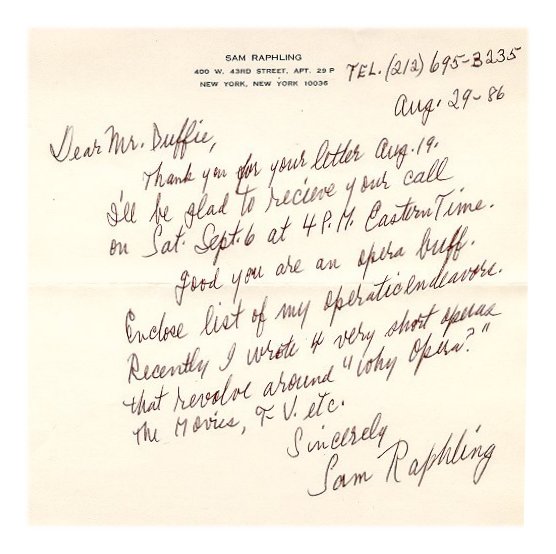 SAM RAPHLING
400 W. 43RD STREET, APT. 29 P
NEW YORK, NEW YORK 10036
TEL. (212) 695-3235
Aug. 29-86
Dear Mr. Duffie,
Thank you for your letter Aug. 19.
I'll be glad to recieve your call
on Sat. Sept. 6 at 4 P.M. Eastern Time.
Good you are an opera buff.
Enclose list of my operatic endeavors.
Recently I wrote 4 very short operas
that revolve around "Why Opera?"
The Movies, T-V. etc.
Sincerely
Sam Raphling